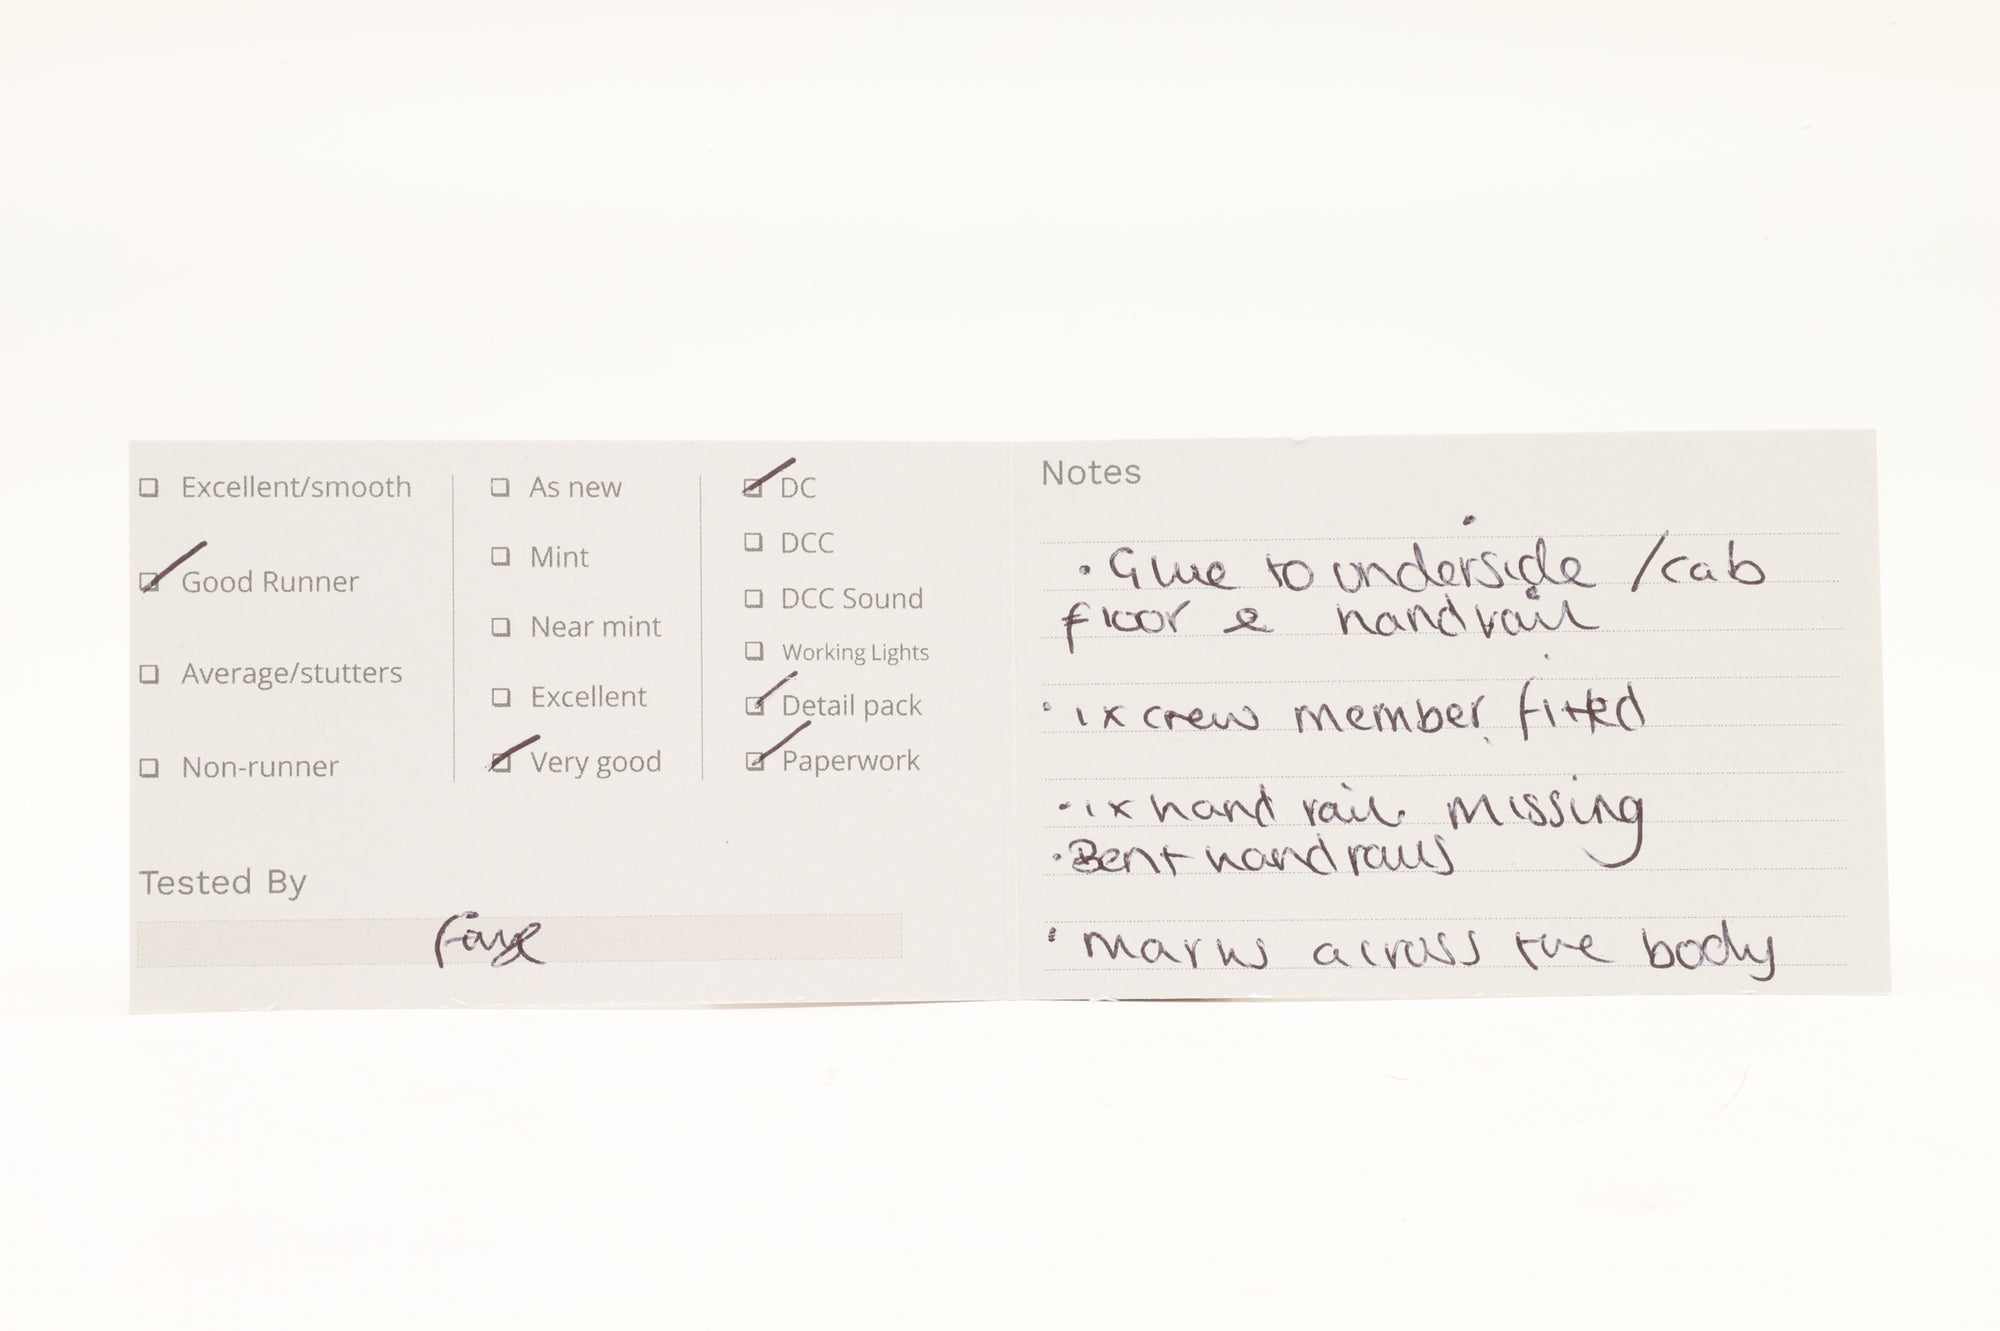 Excellent/smooth
Good Runner
Average/stutters
Non-runner
As new
Mint
Near mint
Excellent
Very good
DC
DCC
DCC Sound
Working Lights
Detail pack
Paperwork
Tested By
Faye
Notes
• Glue to underside /cab
floor & handrail
• 1x crew member fitted
• 1x hand rail missing
• Bent handrails
• Marks across the body